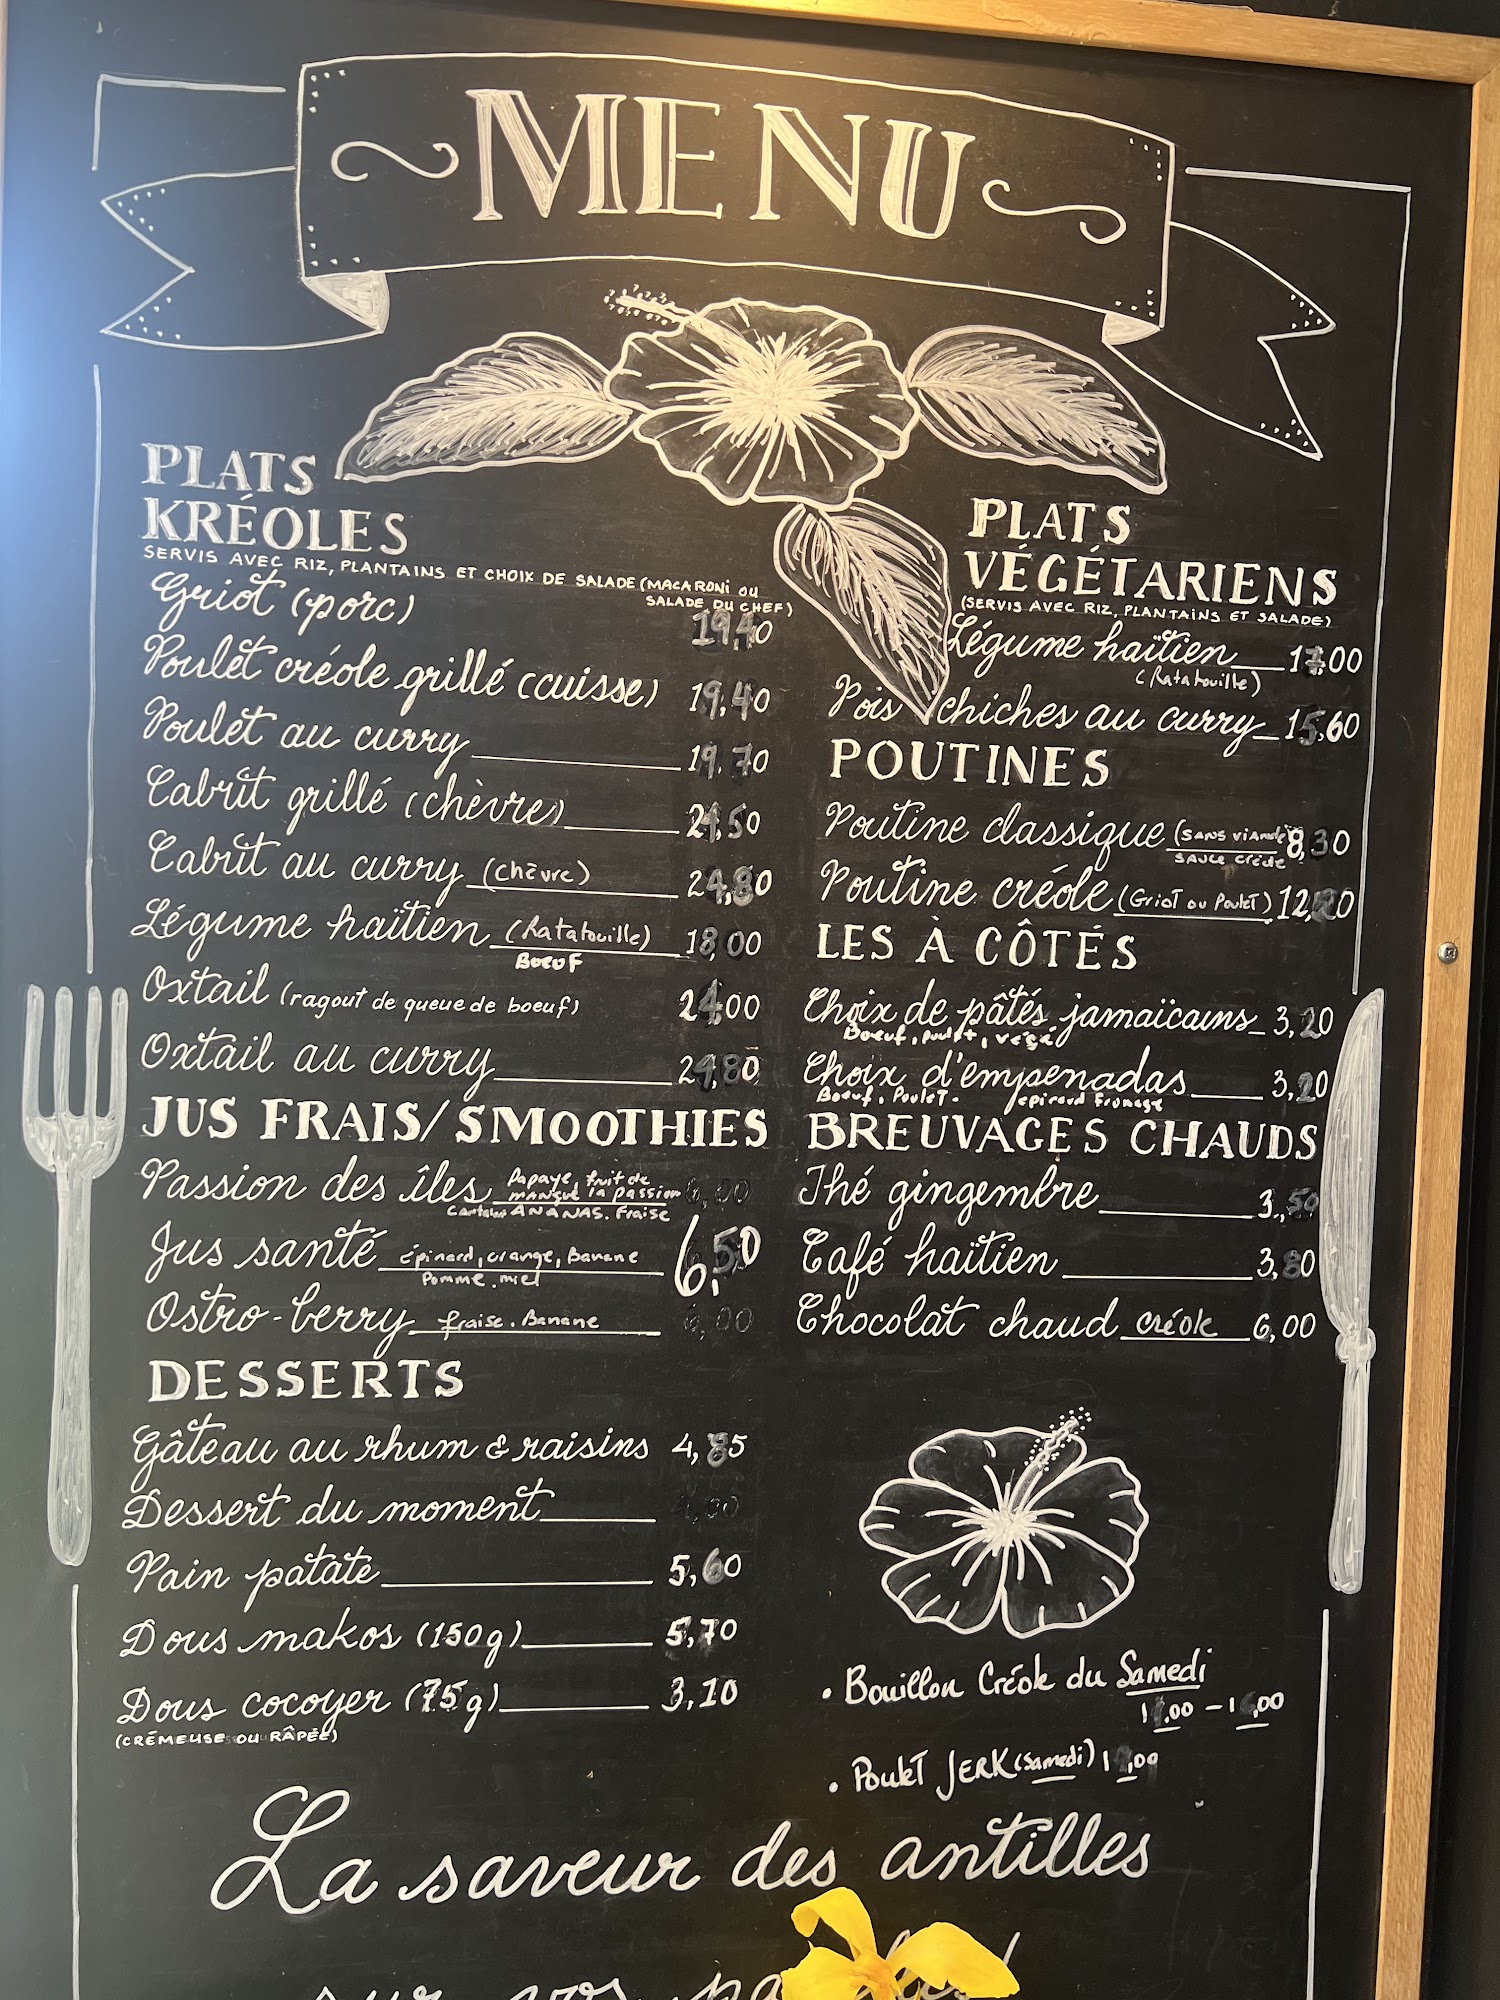 MENU
PLATS
KRÉOLES
SERVIS AVEC RIZ, PLANTAINS ET CHOIX DE SALADE (MACARONI OU
SALADE DU CHEF)
Griot (porc) 19,40
Poulet créole grillé (cuisse) 19,40
Poulet au curry 19.70
Cabrit grillé (chèvre) 24,50
Cabrit au curry (chèvre) 24,80
Légume haïtien (Ratatouille) 18,00
BOEUF
Oxtail (ragout de queue de boeuf) 24,00
Oxtail au curry 24,80
JUS FRAIS/SMOOTHIES
Passion des îles Papaye, fruit de
MANGUE la passion
ANANAS. Fraise
Jus santé épinard, orange, Banane 6,50
Pomme. miel
Ostro-berry fraise. Banane
DESSERTS
Gâteau au rhum & raisins 4,85
Dessert du moment
Pain patate 5,60
Dous makos (150g) 5,70
Dous cocoyer (75g) 3,10
(CRÉMEUSE OU RÂPÉE)
PLATS
VÉGÉTARIENS
(SERVIS AVEC RIZ, PLANTAINS ET SALADE)
Légume haïtien 17.00
(Ratatouille)
Pois chiches au curry 15,60
POUTINES
Poutine classique (SANS VIANDE 8,30
SAUCE Créole
Poutine créole (Griot ou Poulet) 12,20
LES À CÔTÉS
Choix de pâtés jamaïcains 3,20
Boeuf, poulet, végé
Choix d'empenadas 3,20
Boeuf, Poulet. épinard Fromage
BREUVAGES CHAUDS
Thé gingembre 3,50
Café haïtien 3,80
Chocolat chaud créole 6,00
• Bouillon Créole du Samedi
• Poulet JERK (Samedi)
La saveur des antilles
sur vos